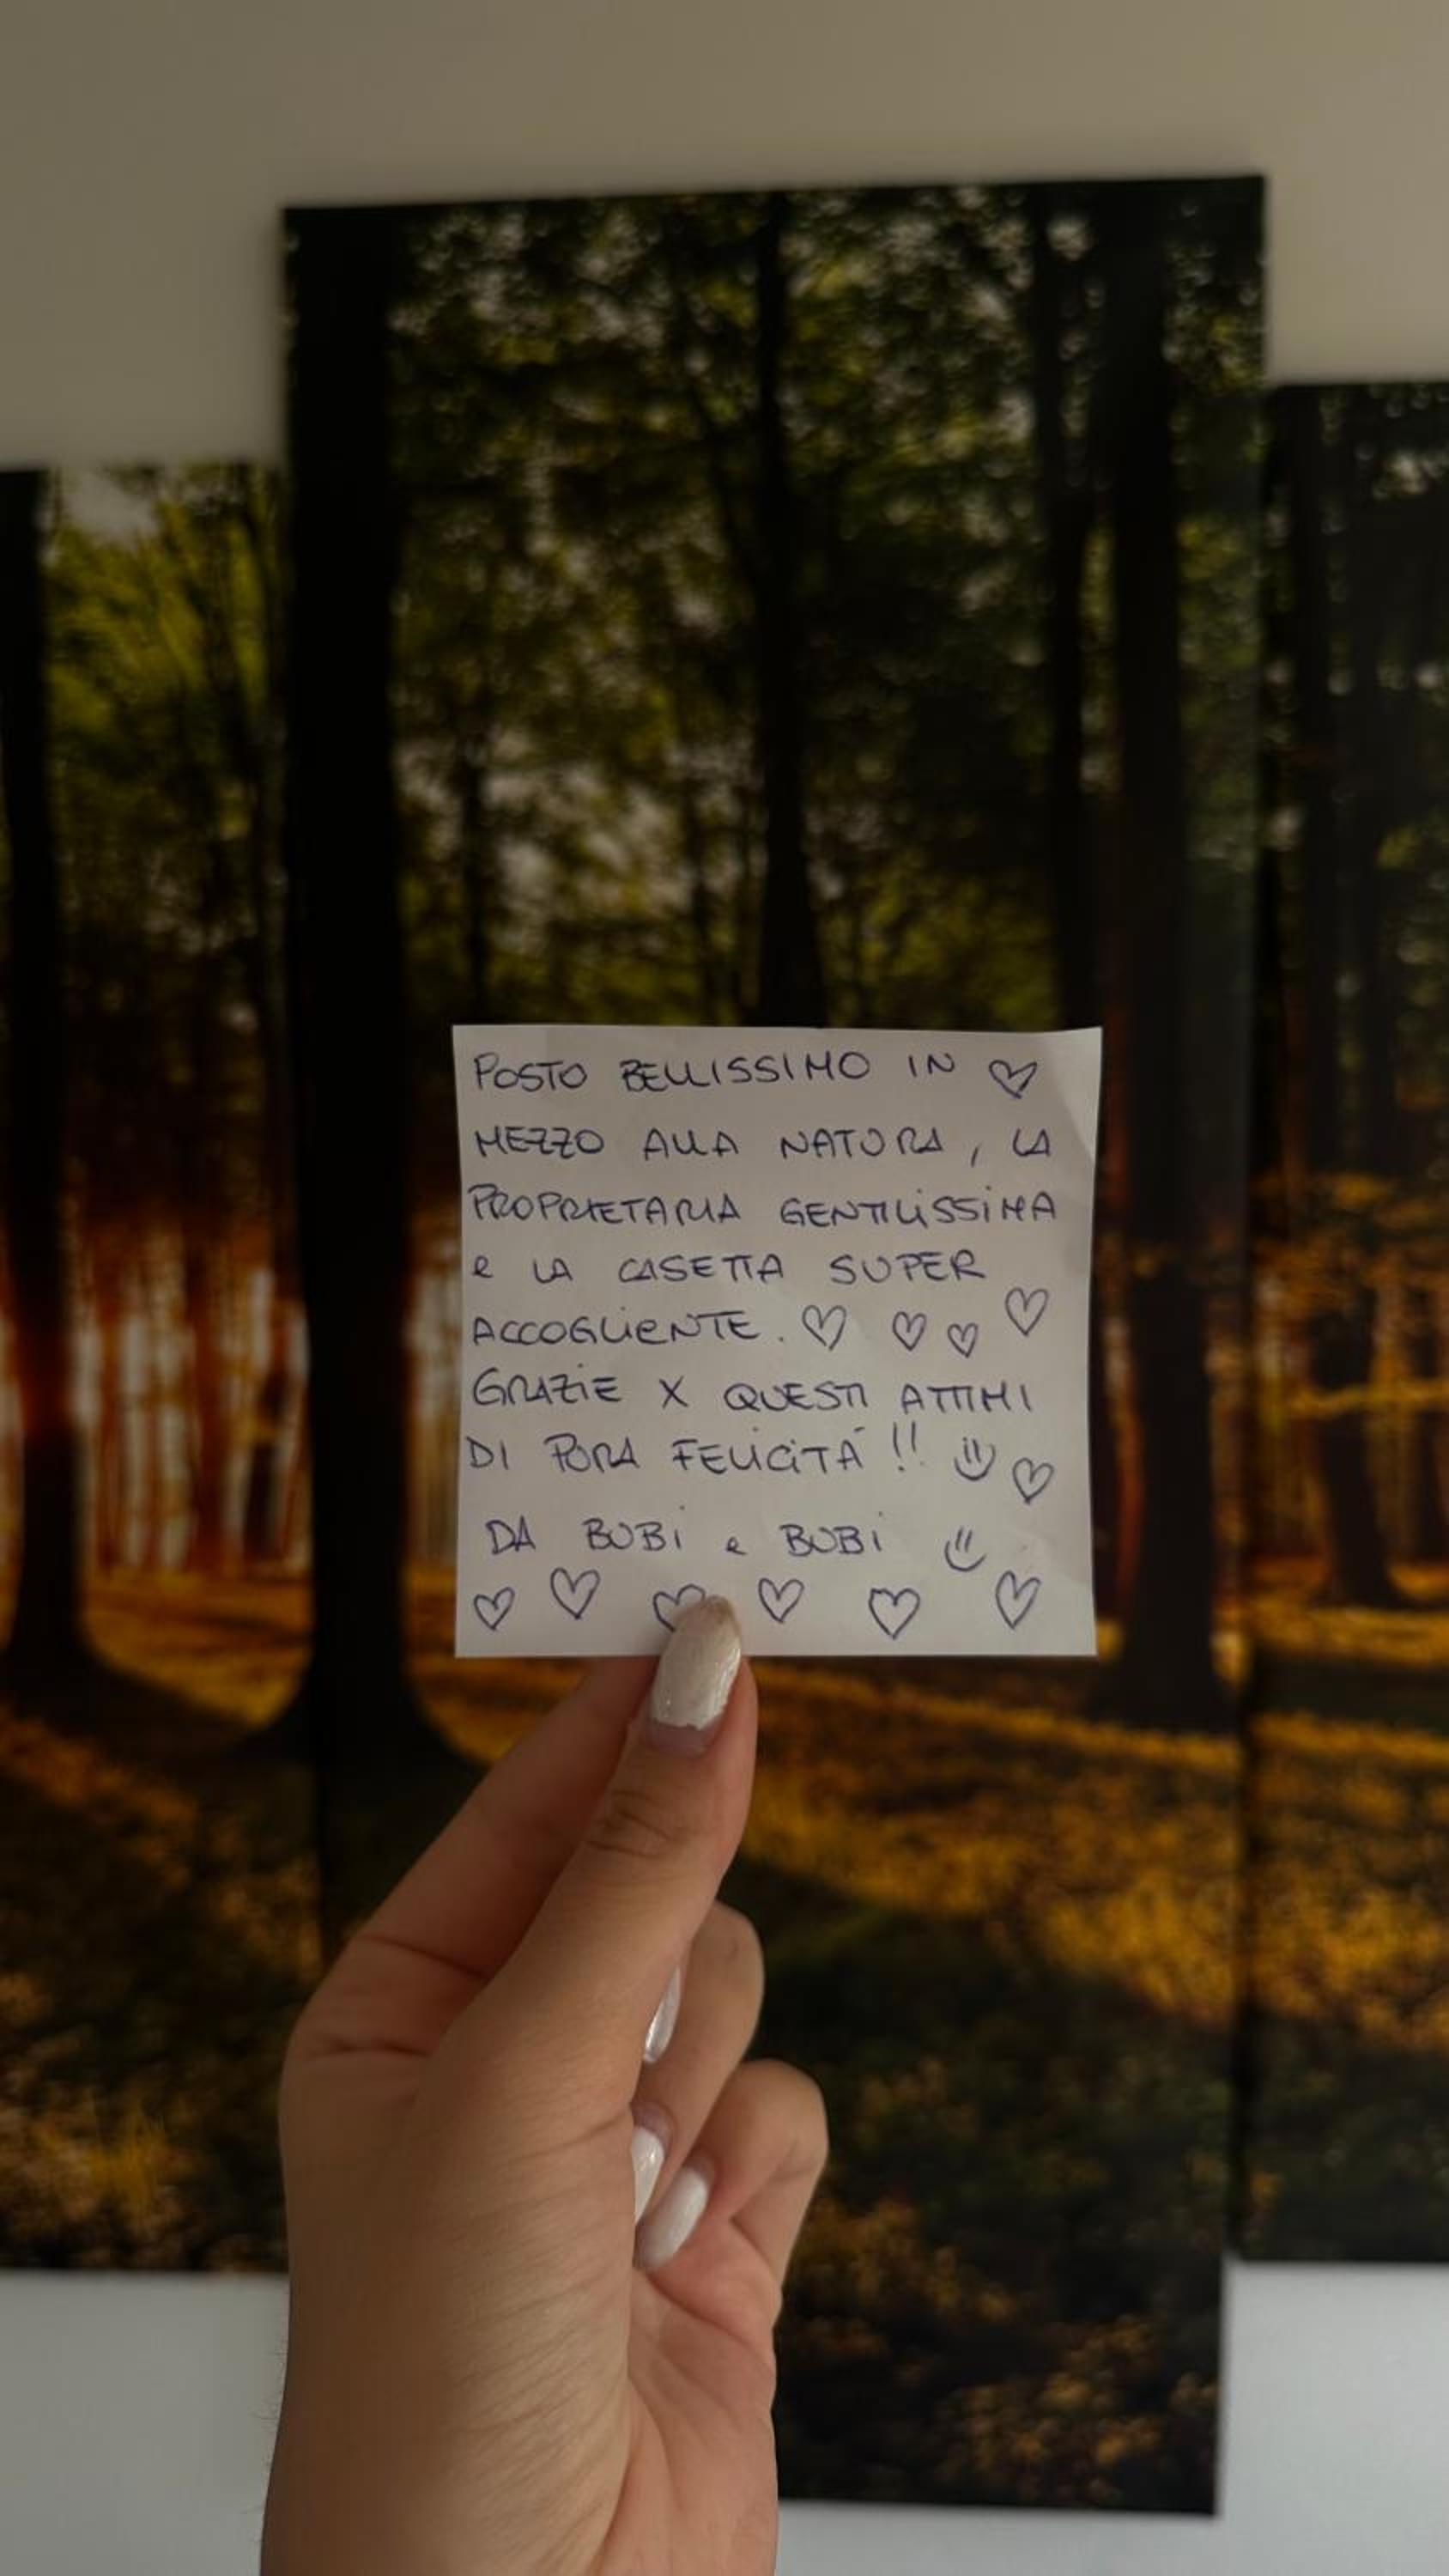 POSTO BELLISSIMO IN ♡
MEZZO ALLA NATURA, LA
PROPRIETARIA GENTILISSIMA
e LA CASETTA SUPER
ACCOGLIENTE. ♡ ♡ ♡ ♡
GRAZIE X QUESTI ATTIMI
DI PURA FELICITÀ!! =) ♡
DA BUBI e BUBI =)
♡ ♡ ♡ ♡ ♡ ♡